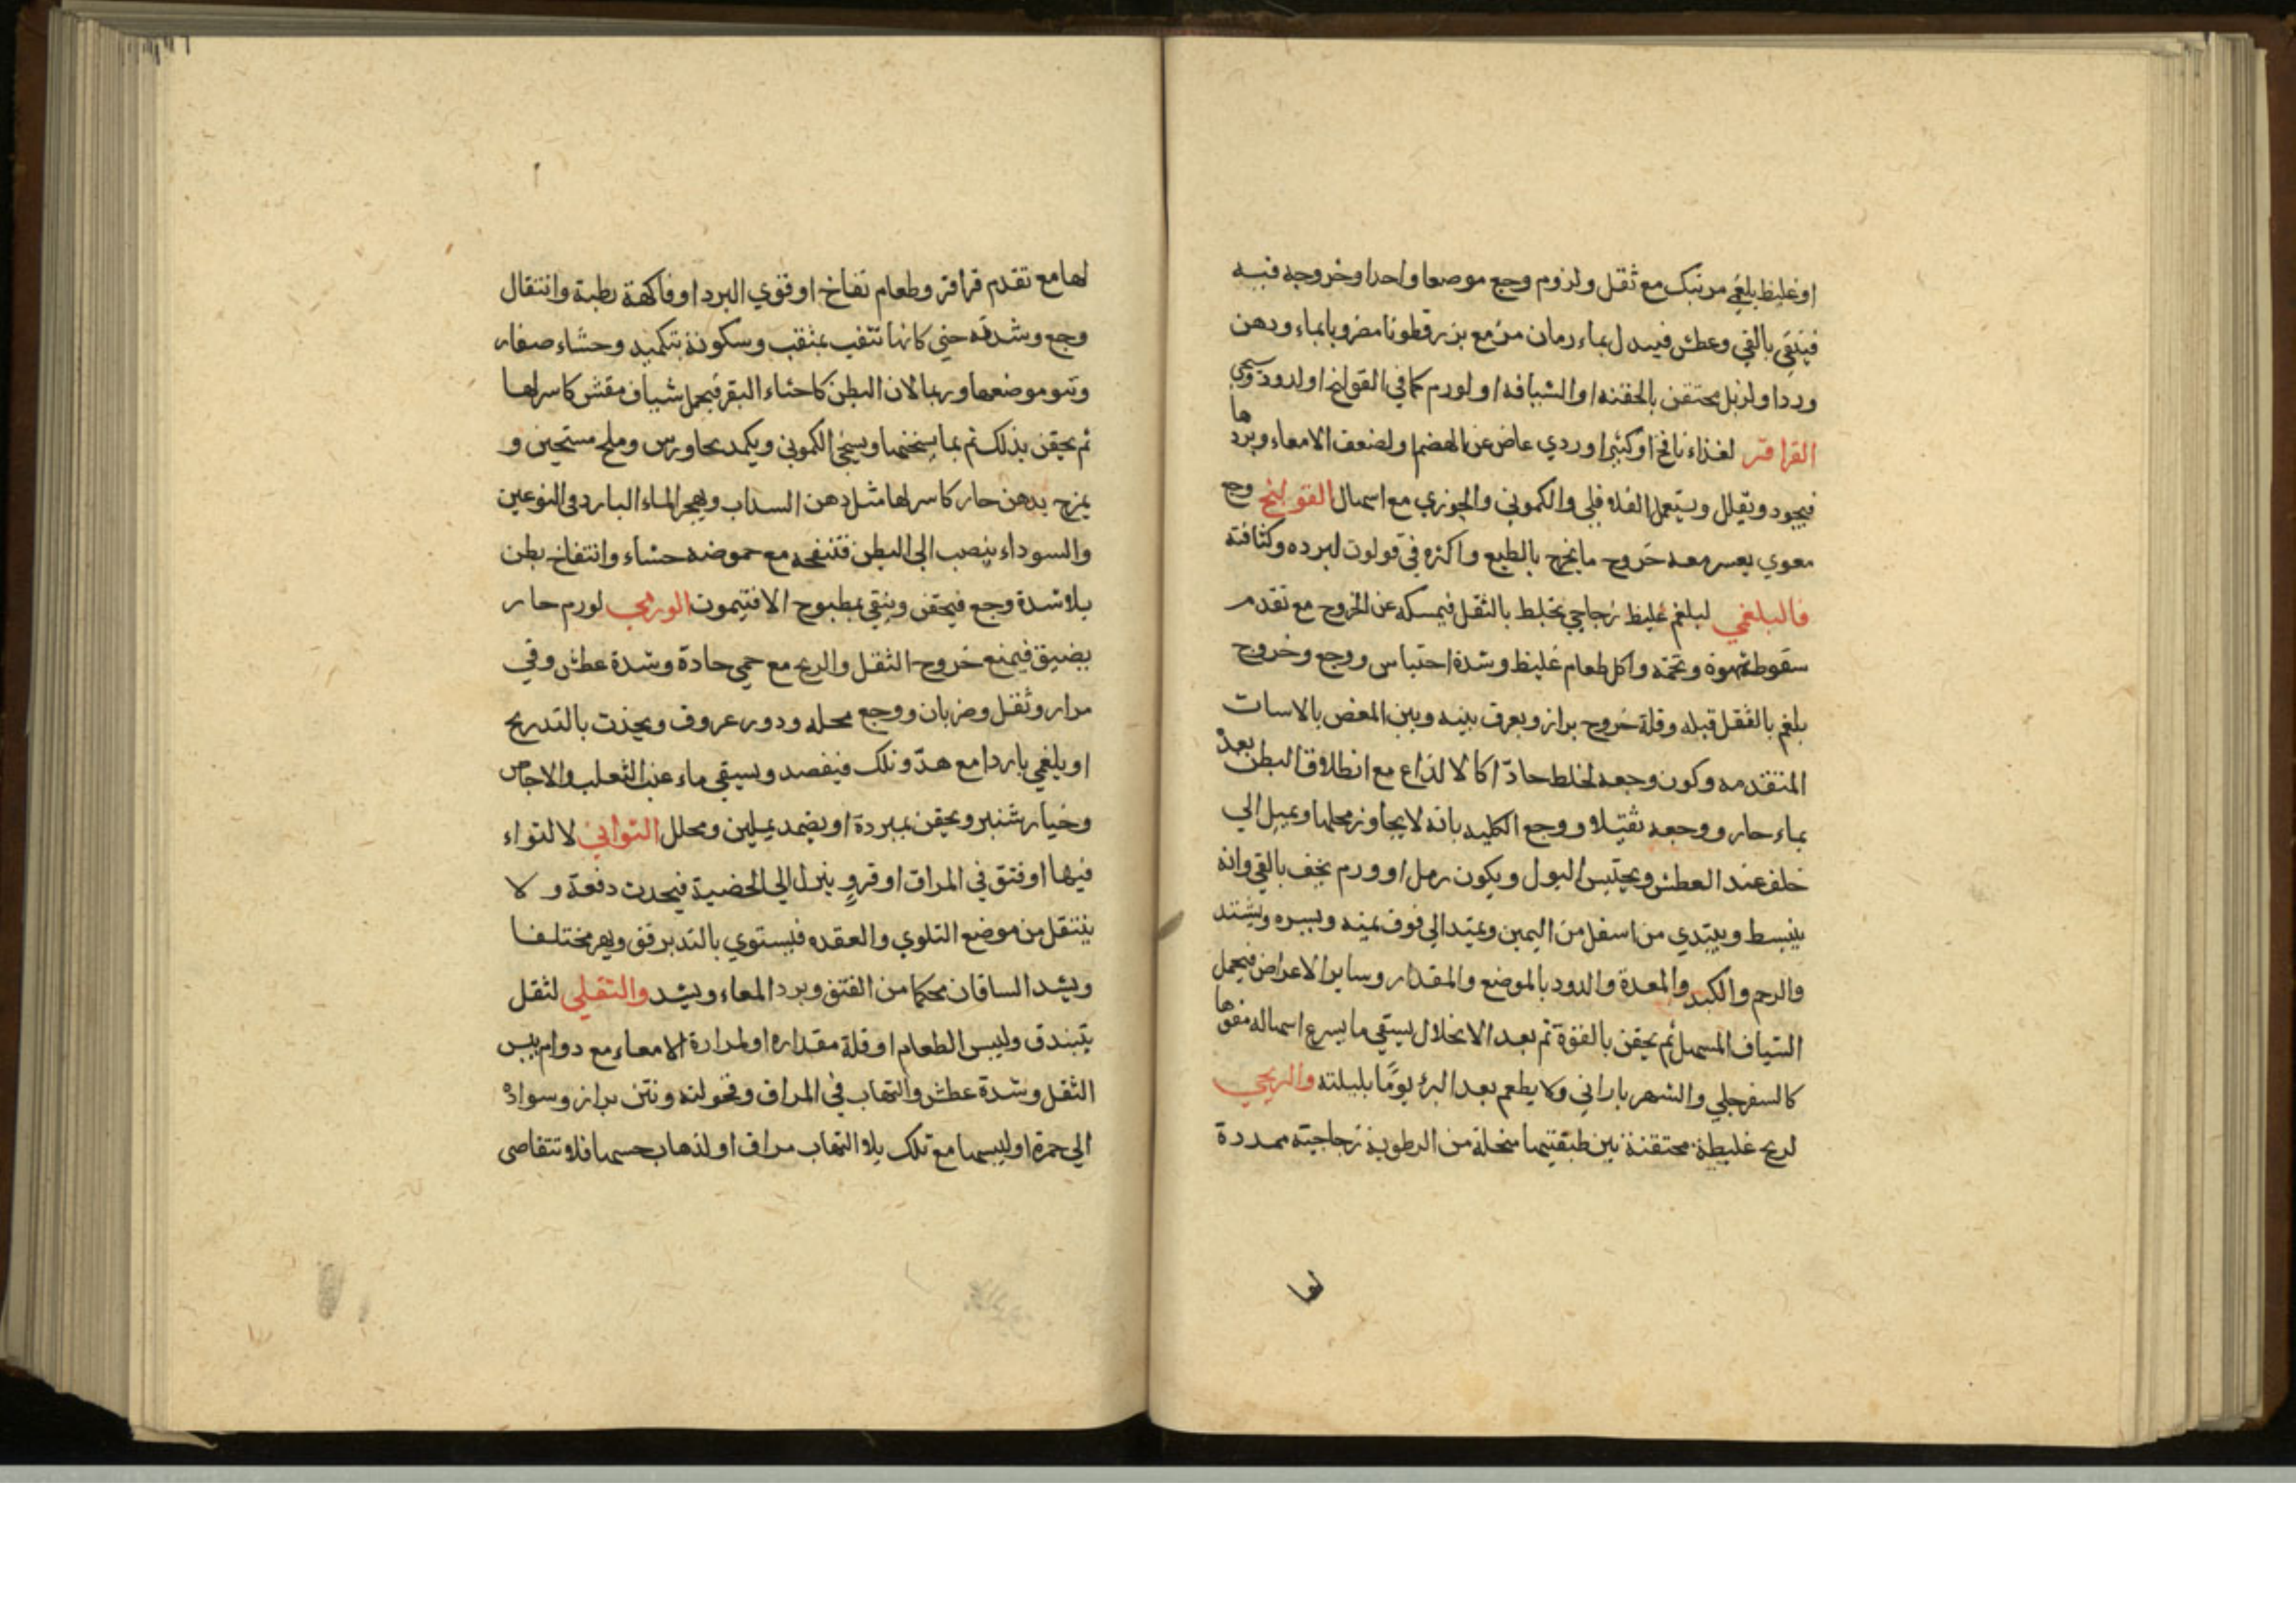 او غليظ بلغمي مرتبك مع ثقل ولزوم وجع موضعا واحدا وخروجه فيه
فينقى بالقي وعطش فيبدل بماء رمان مز مع بزر قطونا مضروبا بماء ودهن
ورد اولزبل محتقن بالحقنه او الشيافه او لورم كما في القولنج او لدود وسيجي
القراقر لغذاء نافخ او كثير او ردي عاض عن الهضم او لضعف الامعاء وبردها
فيجود ويقلل ويستعمل الفلافلي والكموني والجوزي مع اسهال القولنج وجع
معوي يعسر معه خروج ما يخرج بالطبع واكثره في قولون لبرده وكثافته
فالبلغمي لبلغم غليظ زجاجي يختلط بالثقل فيمسكه عن الخروج مع تقدم
سقوط شهوة وتخمه واكل طعام غليظ وشدة احتباس ووجع وخروج
بلغم بالثقل قبله وقلة خروج براز ويعرف بينه وبين المغص بالاسات
المتقدمه وكون وجعه لخلط حادّ اكالا لذاع مع انطلاق البطن بعده
بماء حار ووجعه ثقيلا ووجع الكليه بانه لا يجاوز محلها ويميل الي
خلف عند العطش ويحتبس البول ويكون رمل او ورم يخف بالقي وانه
ينبسط ويبتدي من اسفل من اليمين ويمتد الي فوق يمنه ويسره ويشتد
والرحم والكبد والمعدة والدود بالموضع والمقدار وساير الاعراض فيحمل
الشياف المسهل ثم يحقن بالقوة ثم بعد الانحلال يسقي ما يسرع اسهاله مفوها
كالسفرجلي والشهرياراني ولا يطعم بعد البرؤ يومًا بليلته والريحي
لريح غليظة محتقنة بين طبقتيها منحلة من الرطوبة زجاجيته ممددة
لها
لها مع تقدم قراقر وطعام نفاخ او قوي البرد او فاكهة رطبة وانتقال
وجع وشدته حتي كانها تثقب بمثقب وسكونه بتكميد وجشاء صفار
ونتو موضعها وربما لان البطن كاخثاء البقر فيحمل شياف مقش كاسر لها
ثم يحقن بذلك ثم بما يسخنها ويسخن الكموني ويكمد بجاورس وملح مستحين و
يمزج بدهن حار كاسر لها مثل دهن السداب ويهجر الماء البارد في النوعين
والسوداء ينصب الي البطن فتنفخه مع حموضه جشاء وانتفاخ بطن
بلا شدة وجع فيحقن وينقي بمطبوخ الافتيمون الورمي لورم حار
يضيق فيمنع خروج الثقل والريح مع حمي حادة وشدة عطش وقي
مرار وثقل وضربان ووجع محله ودور عروق ويحدث بالتدريج
او بلغمي باردا مع هدّو تلك فيفصد ويسقي ماء عنب الثعلب والاجاص
وخيار شنبر ويحقن بمبردة او يضمد بملين ومحلل التوائي لالتواء
فيها او فتق في المراق او قرو ينزل الي الخصية فيحدث دفعة و لا
ينتقل من موضع التلوي والعقده فيستوي بالتدبر فق ويهر مختلفا
ويشد الساقان محكما من الفتق ويرد المعاء ويشد والثقلي لثقل
يتبندق وليبس الطعام او قلة مقداره او لمرارة الامعاء مع دوام يبس
الثقل وشدة عطش والتهاب في المراق ونحولته ونتن براز وسواده
الي حمرة او ليبسها مع تلك بلا التهاب مراق او لذهاب حسها فلا تتقاصي